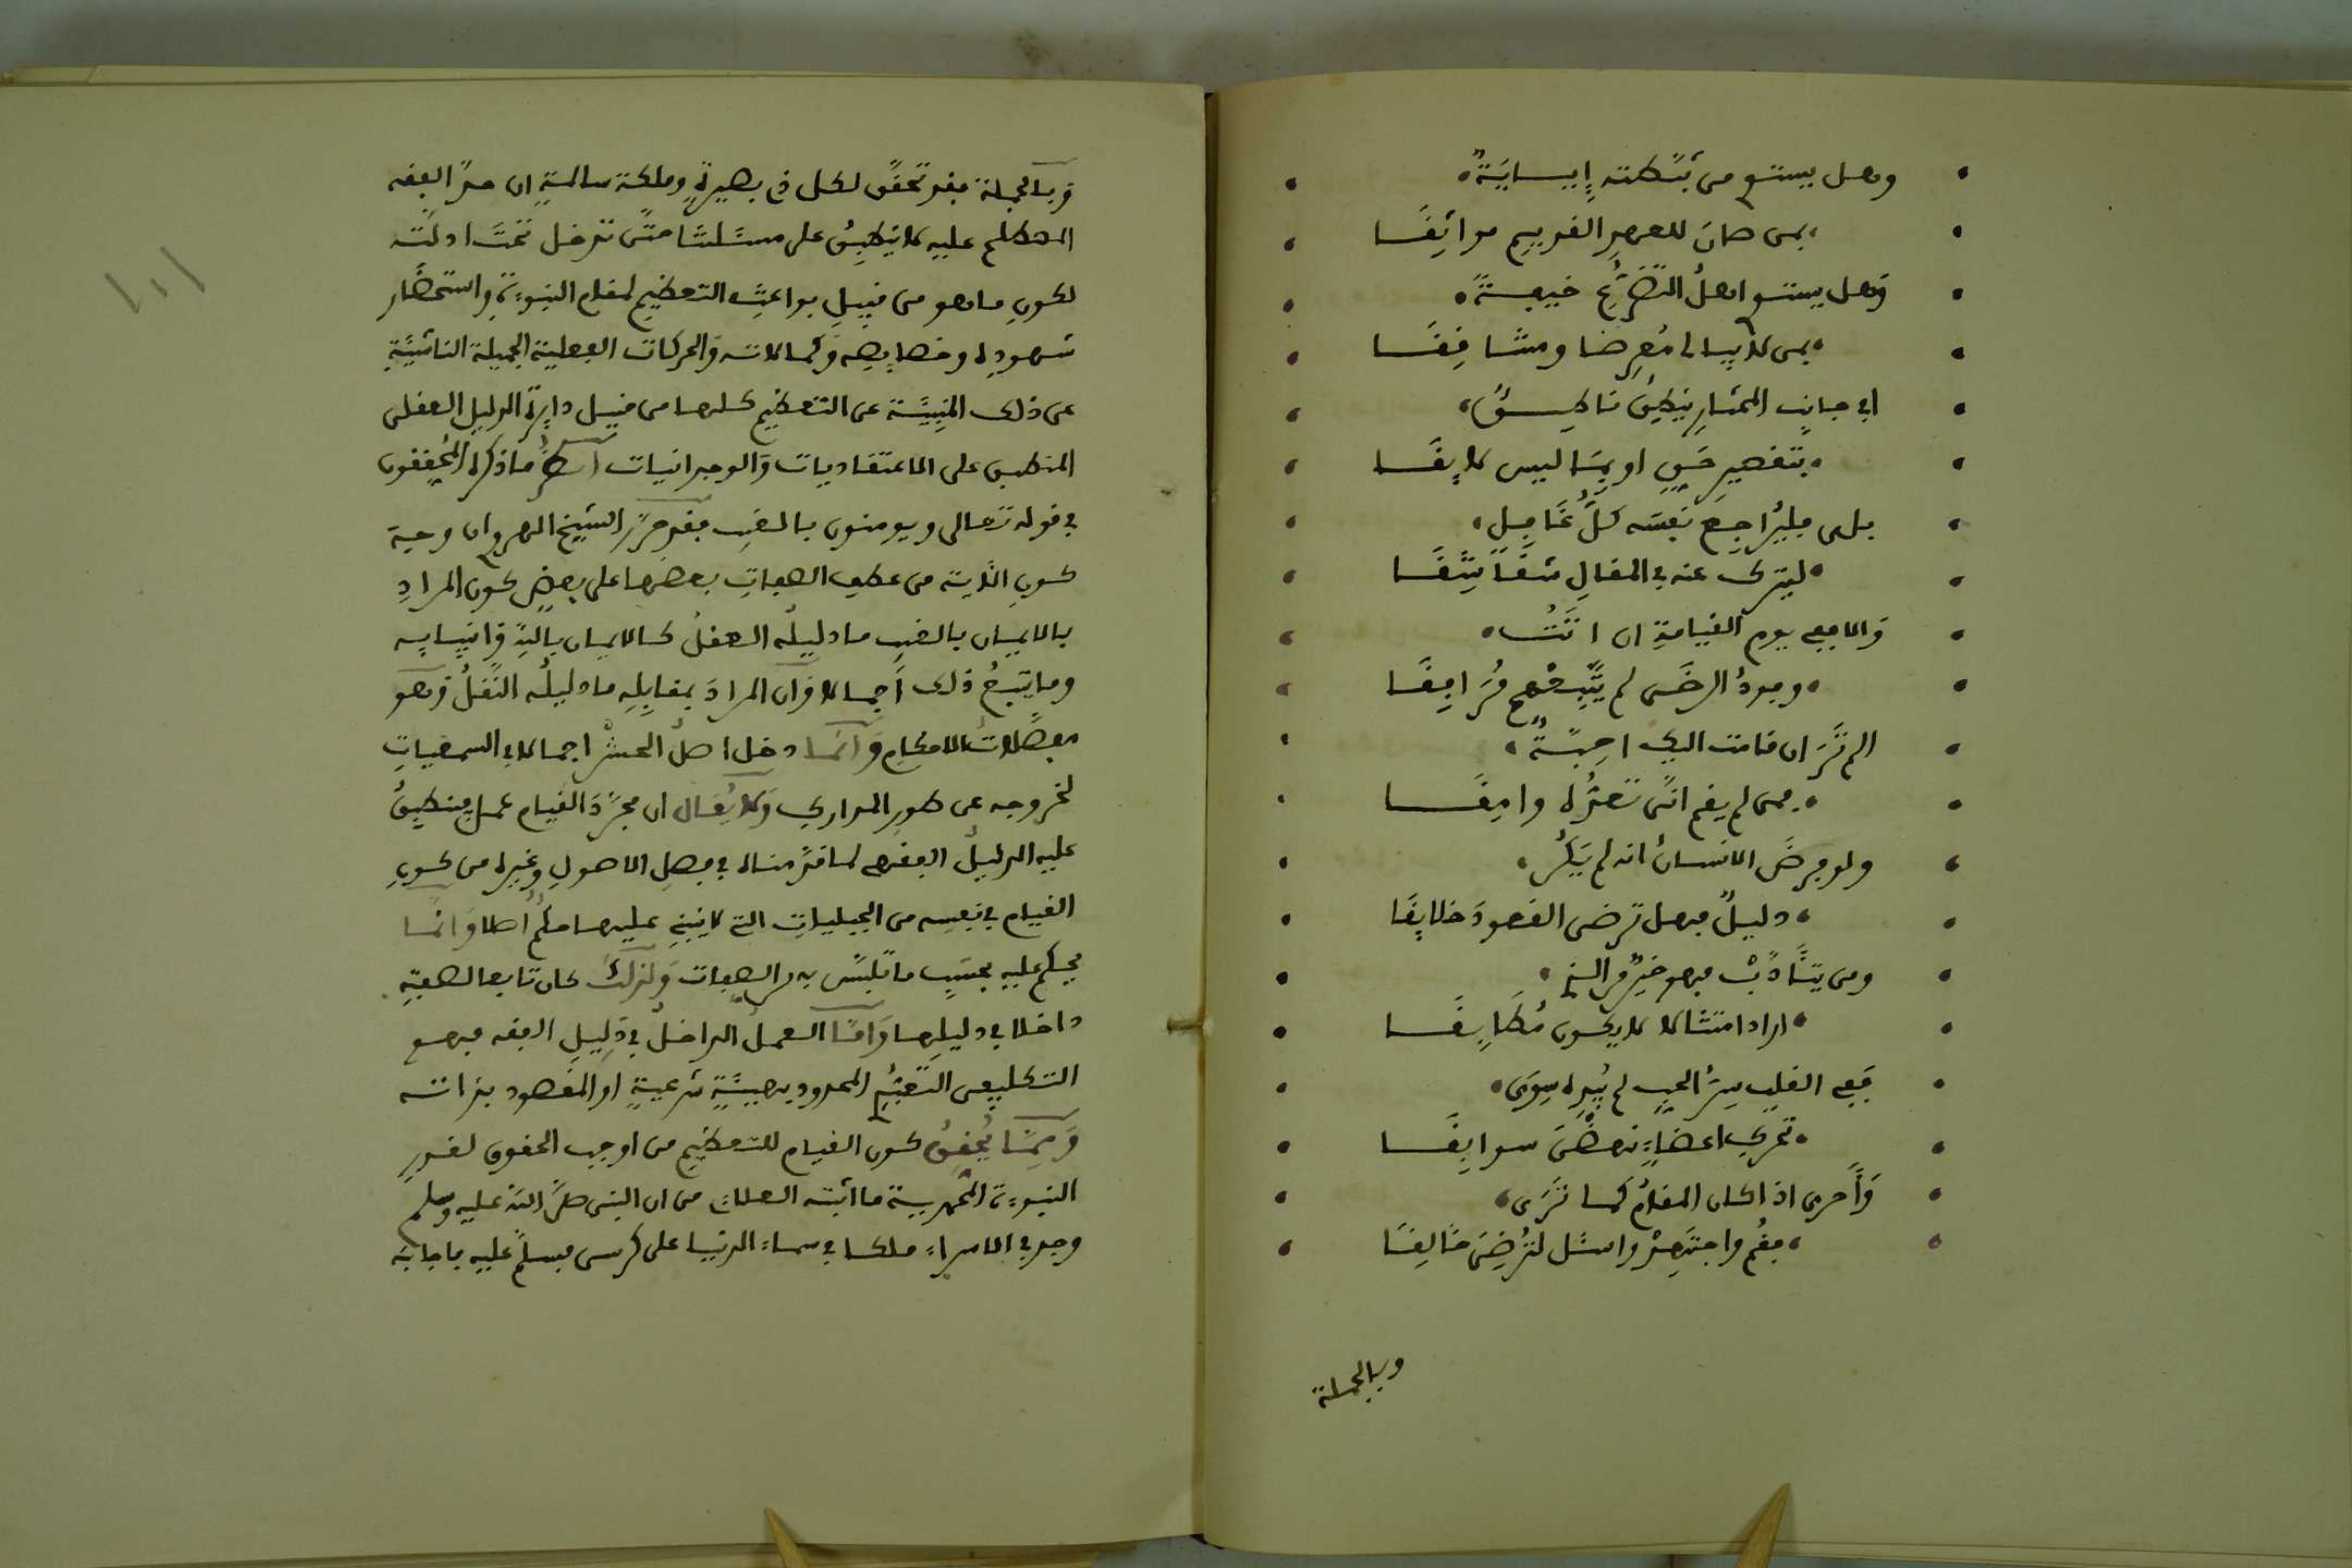 وهل يستوي من بَتَّكته إِيسايَةٌ
بمن صان للعهدِ القديمِ مواثِقَا
وَهل يستوي اهلُ التضرُّعِ خيبةً
بمن لا يبالى مُعرِضا ومشاقِقَا
افي جانب المختارِ ينطِقُ ناطِقٌ
بتقصيرِ حَقٍ او بِمَا ليس لايقَا
بلى فليُراجِع نفسَه كلُّ غَافِلٍ
ليترك عنه في المقالِ شقاشقَا
وَالا ففي يوم القيامةِ ان اتَتْ
وفودُ الرضَى لم تَتَّبِعْهم مُرافِقَا
الم تَرَ ان قامت اليك احِبَّةٌ
فمن لم يقم انَّى تعدُّه وامِقَا
ولو فرضَ الانسانُ انه لم يَكُن
دليلٌ فهل ترضى القعودَ خلايِقَا
ومن يتأدَّبْ فهو خيرٌ من الذي
اراد امتثالا لا يكون مُطَابِقَا
ففي القلبِ سِرُّ الحبِ لم يُبدِه سِوَى
تحري اعضاءٍ نهضْنَ سوابِقَا
وَأحرى اذا كان المقامُ كما تَرَى
فقُم واجتَهِدْ واسئل لتُرضِىَ خَالِقَا
وبالجملة
وَبالجملة فقد تحقَّق لكل ذي بصيرةٍ وملكة سالمةٍ ان حدَّ الفقه
المصطلح عليه لا ينطبِقُ على مسئلتنا حتَّى تدخل تحتَ ادلَّتِه
لكونِ ما هو من قبيلِ بواعثِ التعظيمِ لمقامِ النبوءةِ واستحضار
شهودِه وخصايصِه وَكمالاته وَالحركات الفعلية الجميلة الناشئةِ
عن ذلك المنبِئة عن التعظيم كلها من قبيل دايرة الدليلِ العقلى
المنطبق على الاعتقاديات وَالوجدانيات انظر ما ذكره المُحققون
في قوله تعالى ويومنون بالغيب فقد حرَّر الشيخ الصروان وجه
كونِ الاية من عطف الصفاتِ بعضها على بعضٍ كون المرادِ
بالايمان بالغيبِ ما دليلُه العقلُ كالايمان باللهِ وَانبيايِه
وما يتبعُ ذلك اجمالا وَان المرادَ بمقابِلِه ما دليلُه النَّقلُ وَهو
مفصَّلاتُ الاحكامِ وَانما دخل اصلُ الحشْرِ اجمالا في السمعياتِ
لخروجه عن طورِ المداركِ وَلا يُقال ان مجرَّدَ القيام عمل فينطبِقُ
عليه الدليلُ الفقهى لما قدَّمناه في فصلِ الاصولِ وغيره من كونِ
القيام في نفسِه من الجبليات التي لا ينبنِى عليها حكمٌ اصلا وَانَّما
يحكم عليه بحسَبِ ما تلبَّس به من الصفات وَلذلك كان تابعا لصفتِه
داخلا في دليلِها وَامَّا العملُ الداخلُ في دَليلِ الفقه فهو
التكليفى التعبُّدي المحدود بهيئةٍ شرعيةٍ او المقصود بذاته
وَمِمَّا يُحقِقُ كون القيام للتعظيمِ من اوجب الحقوق لقدرِ
النبوءة المحمدية ما اثبته العلماء من ان النبى صلى الله عليه وسلم
وجد في الاسراء ملكا في سماء الدنيا على كرسى فسلم عليه فاجابه